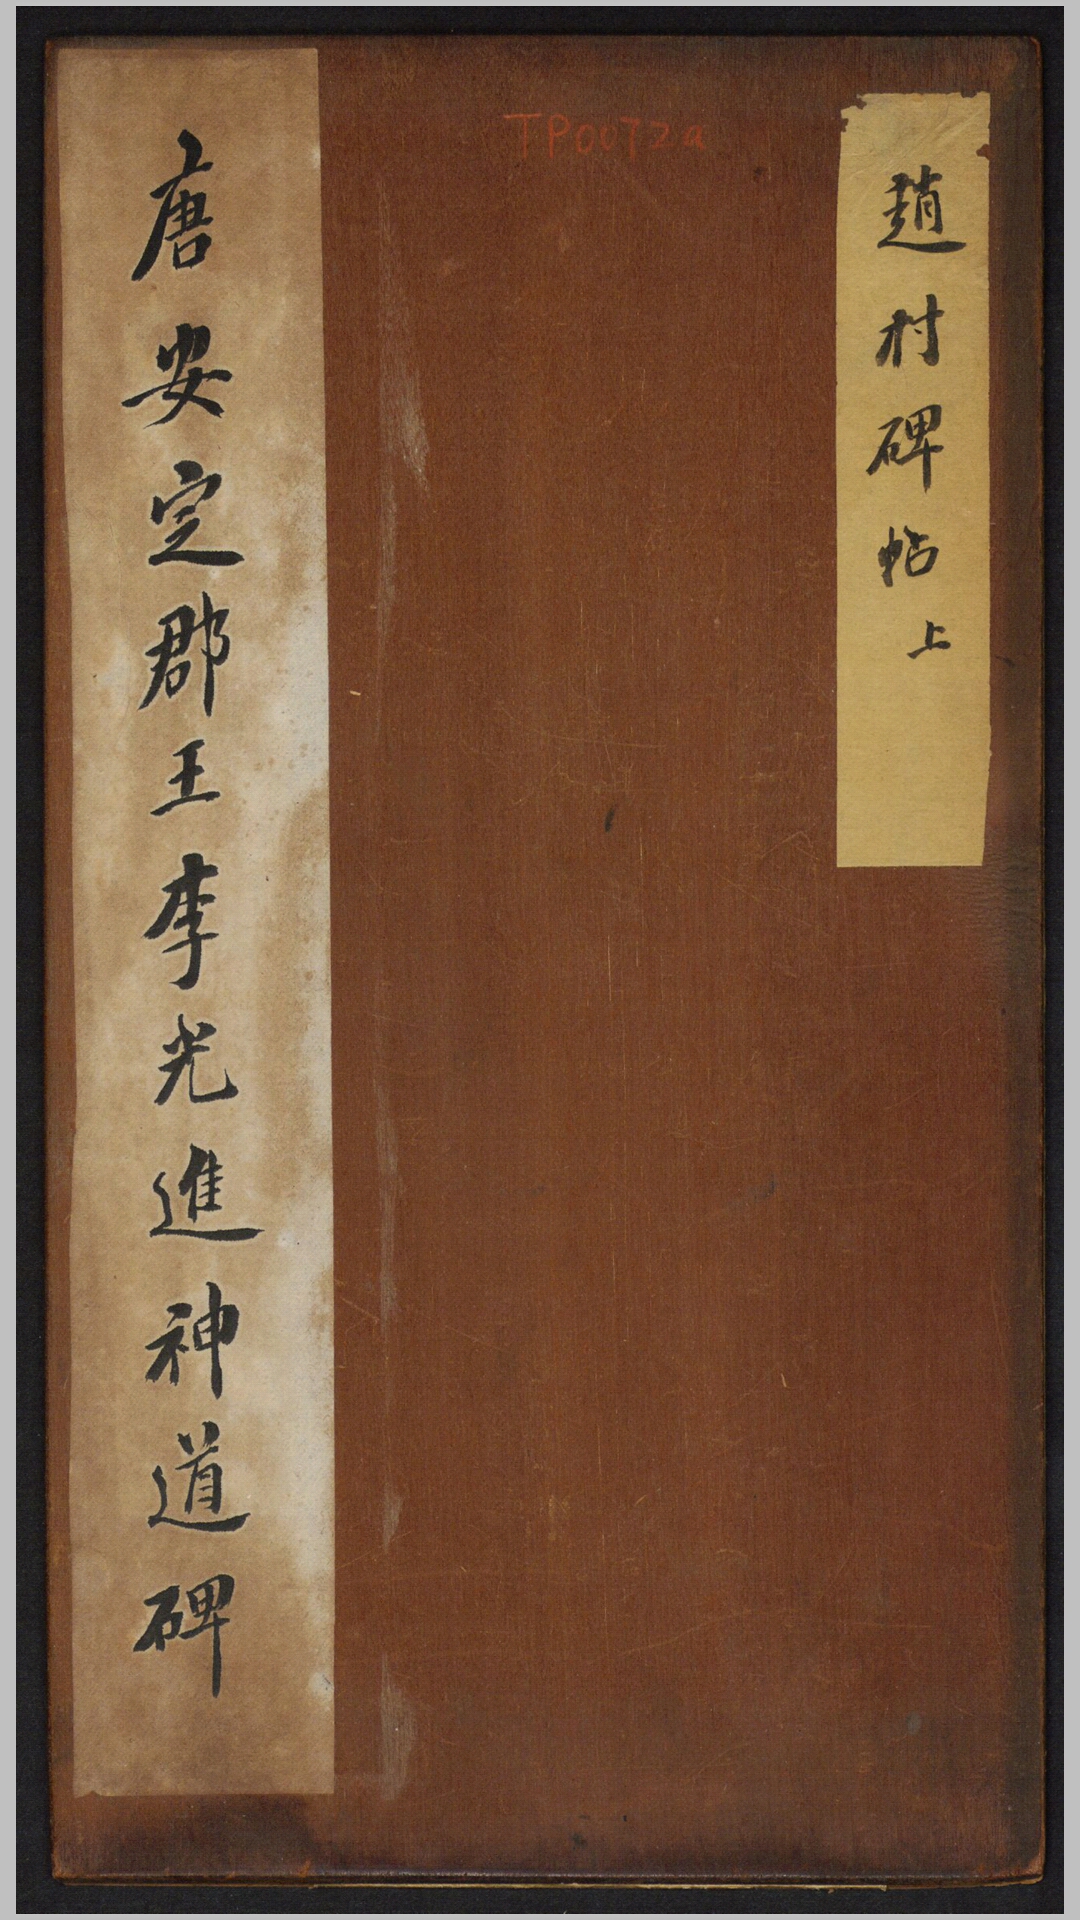 趙村碑帖上
TP0072a
唐安定郡王李光進神道碑